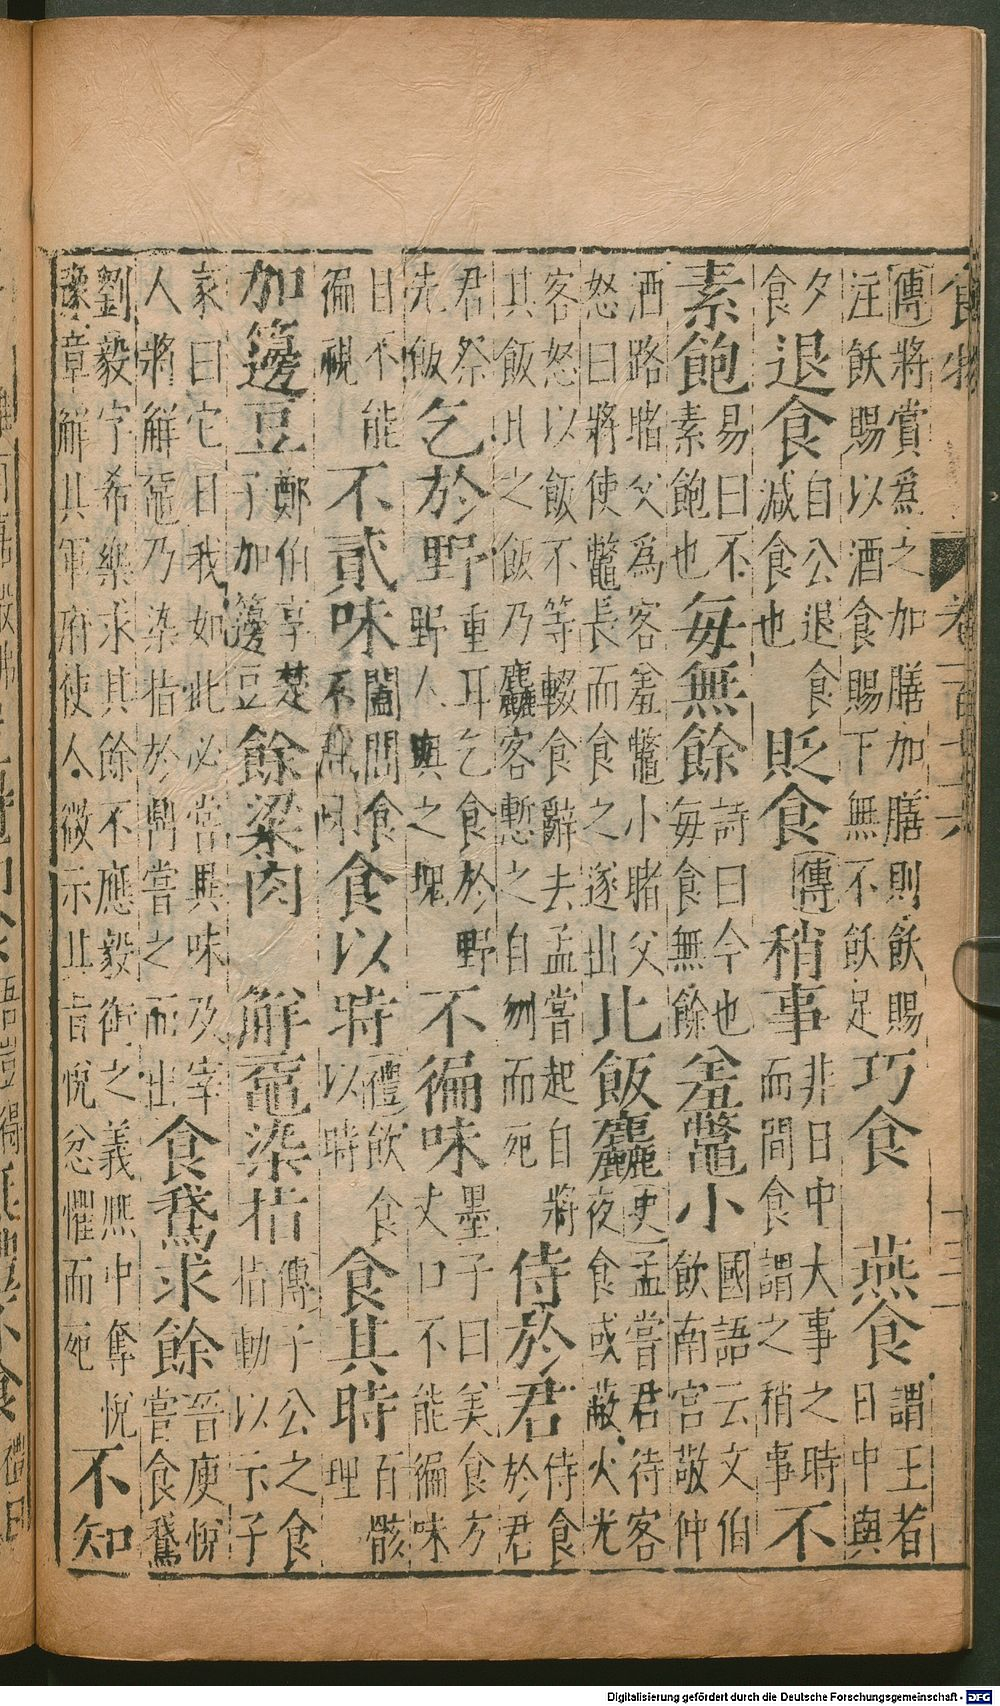 食物
傳將賞爲之加膳加膳則飫賜注飫賜以酒食賜下無不飫足巧食 燕食謂王者日中與
夕食退食自公退食減食也貶食傳稍事非日中大事之時而間食謂之稍事不
素飽易曰不素飽也每無餘詩曰今也每食無餘羞鼈小國語云文伯飲南宮敬仲
酒路睹父爲客羞鼈小睹父怒曰將使鼈長而食之遂出比飯麤史孟嘗君待客夜食或蔽火光
客怒以飯不等輟食辭去孟嘗起自將其飯比之飯乃麤客慙之自刎而死侍於君侍食於君
君祭先飯乞於野重耳乞食於野野人與之塊不徧味墨子曰美食方丈口不能徧味
目不能徧視不貳味闔閭食不貳味食以時禮飲食以時食其時百骸理
加籩豆鄭伯享楚子加籩豆餘粱肉 解黿染指傳子公之食指動以示子
家曰它日我如此必嘗異味及宰人將解黿乃染指於鼎嘗之而出食鵞求餘晉庾悅嘗食鵞
劉毅字希樂求其餘不應毅銜之義熙中奪悅豫章解其軍府使人微示其旨悅忿懼而死不知
Digitalisierung gefördert durch die Deutsche Forschungsgemeinschaft - DFG